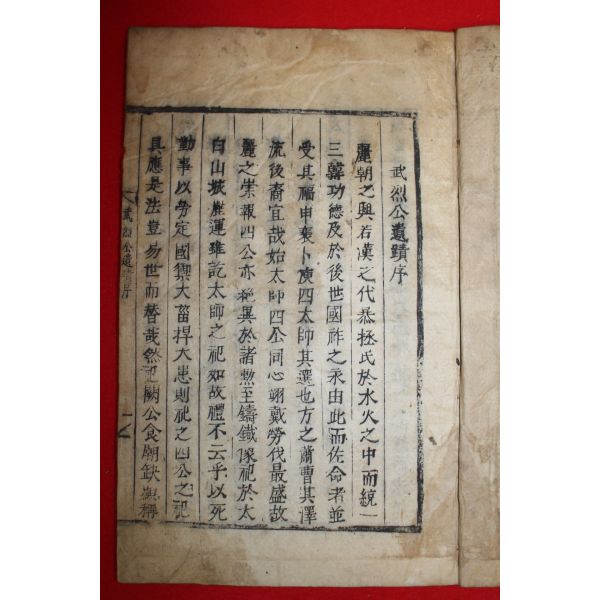 武烈公遺蹟序
麗朝之興若漢之代秦拯民於水火之中而統一
三韓功德及於後世國祚之永由此而佐命者並
受其福申裵卜庾四太師其選也方之蕭曹其澤
流後裔宜哉如太師四公同心翊戴勞伐最盛故
麗之崇報四公亦絶異於諸勲至鑄鐵像祀於太
白山城崖運雖訖太師之祀如故禮不云乎以死
勤事以勞定國禦大菑捍大患則祀之四公之祀
具應是法豈易世而替哉然祀闕公食廟缺觀稱
武烈公遺蹟序
一